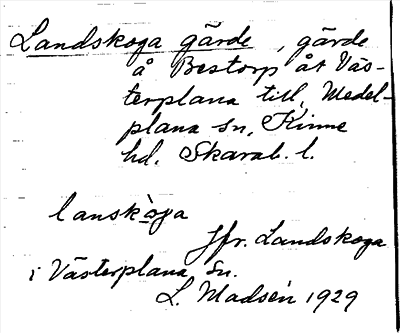 Landskoga gärde, gärde
å Bestorp åt Väs-
terplana till, Medel-
plana sn, Kinne
hd. Skarab. l.
lanskòga
Jfr. Landskoga
i Västerplana sn.
L. Madsén 1929